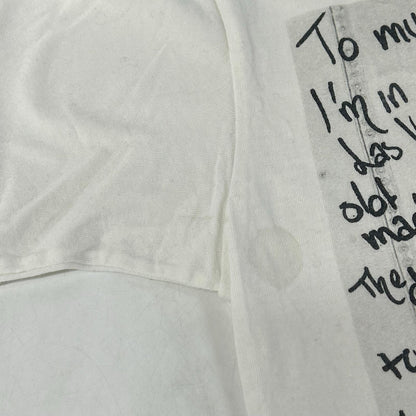 To my
I'm in
Las V
old
ma
The
to